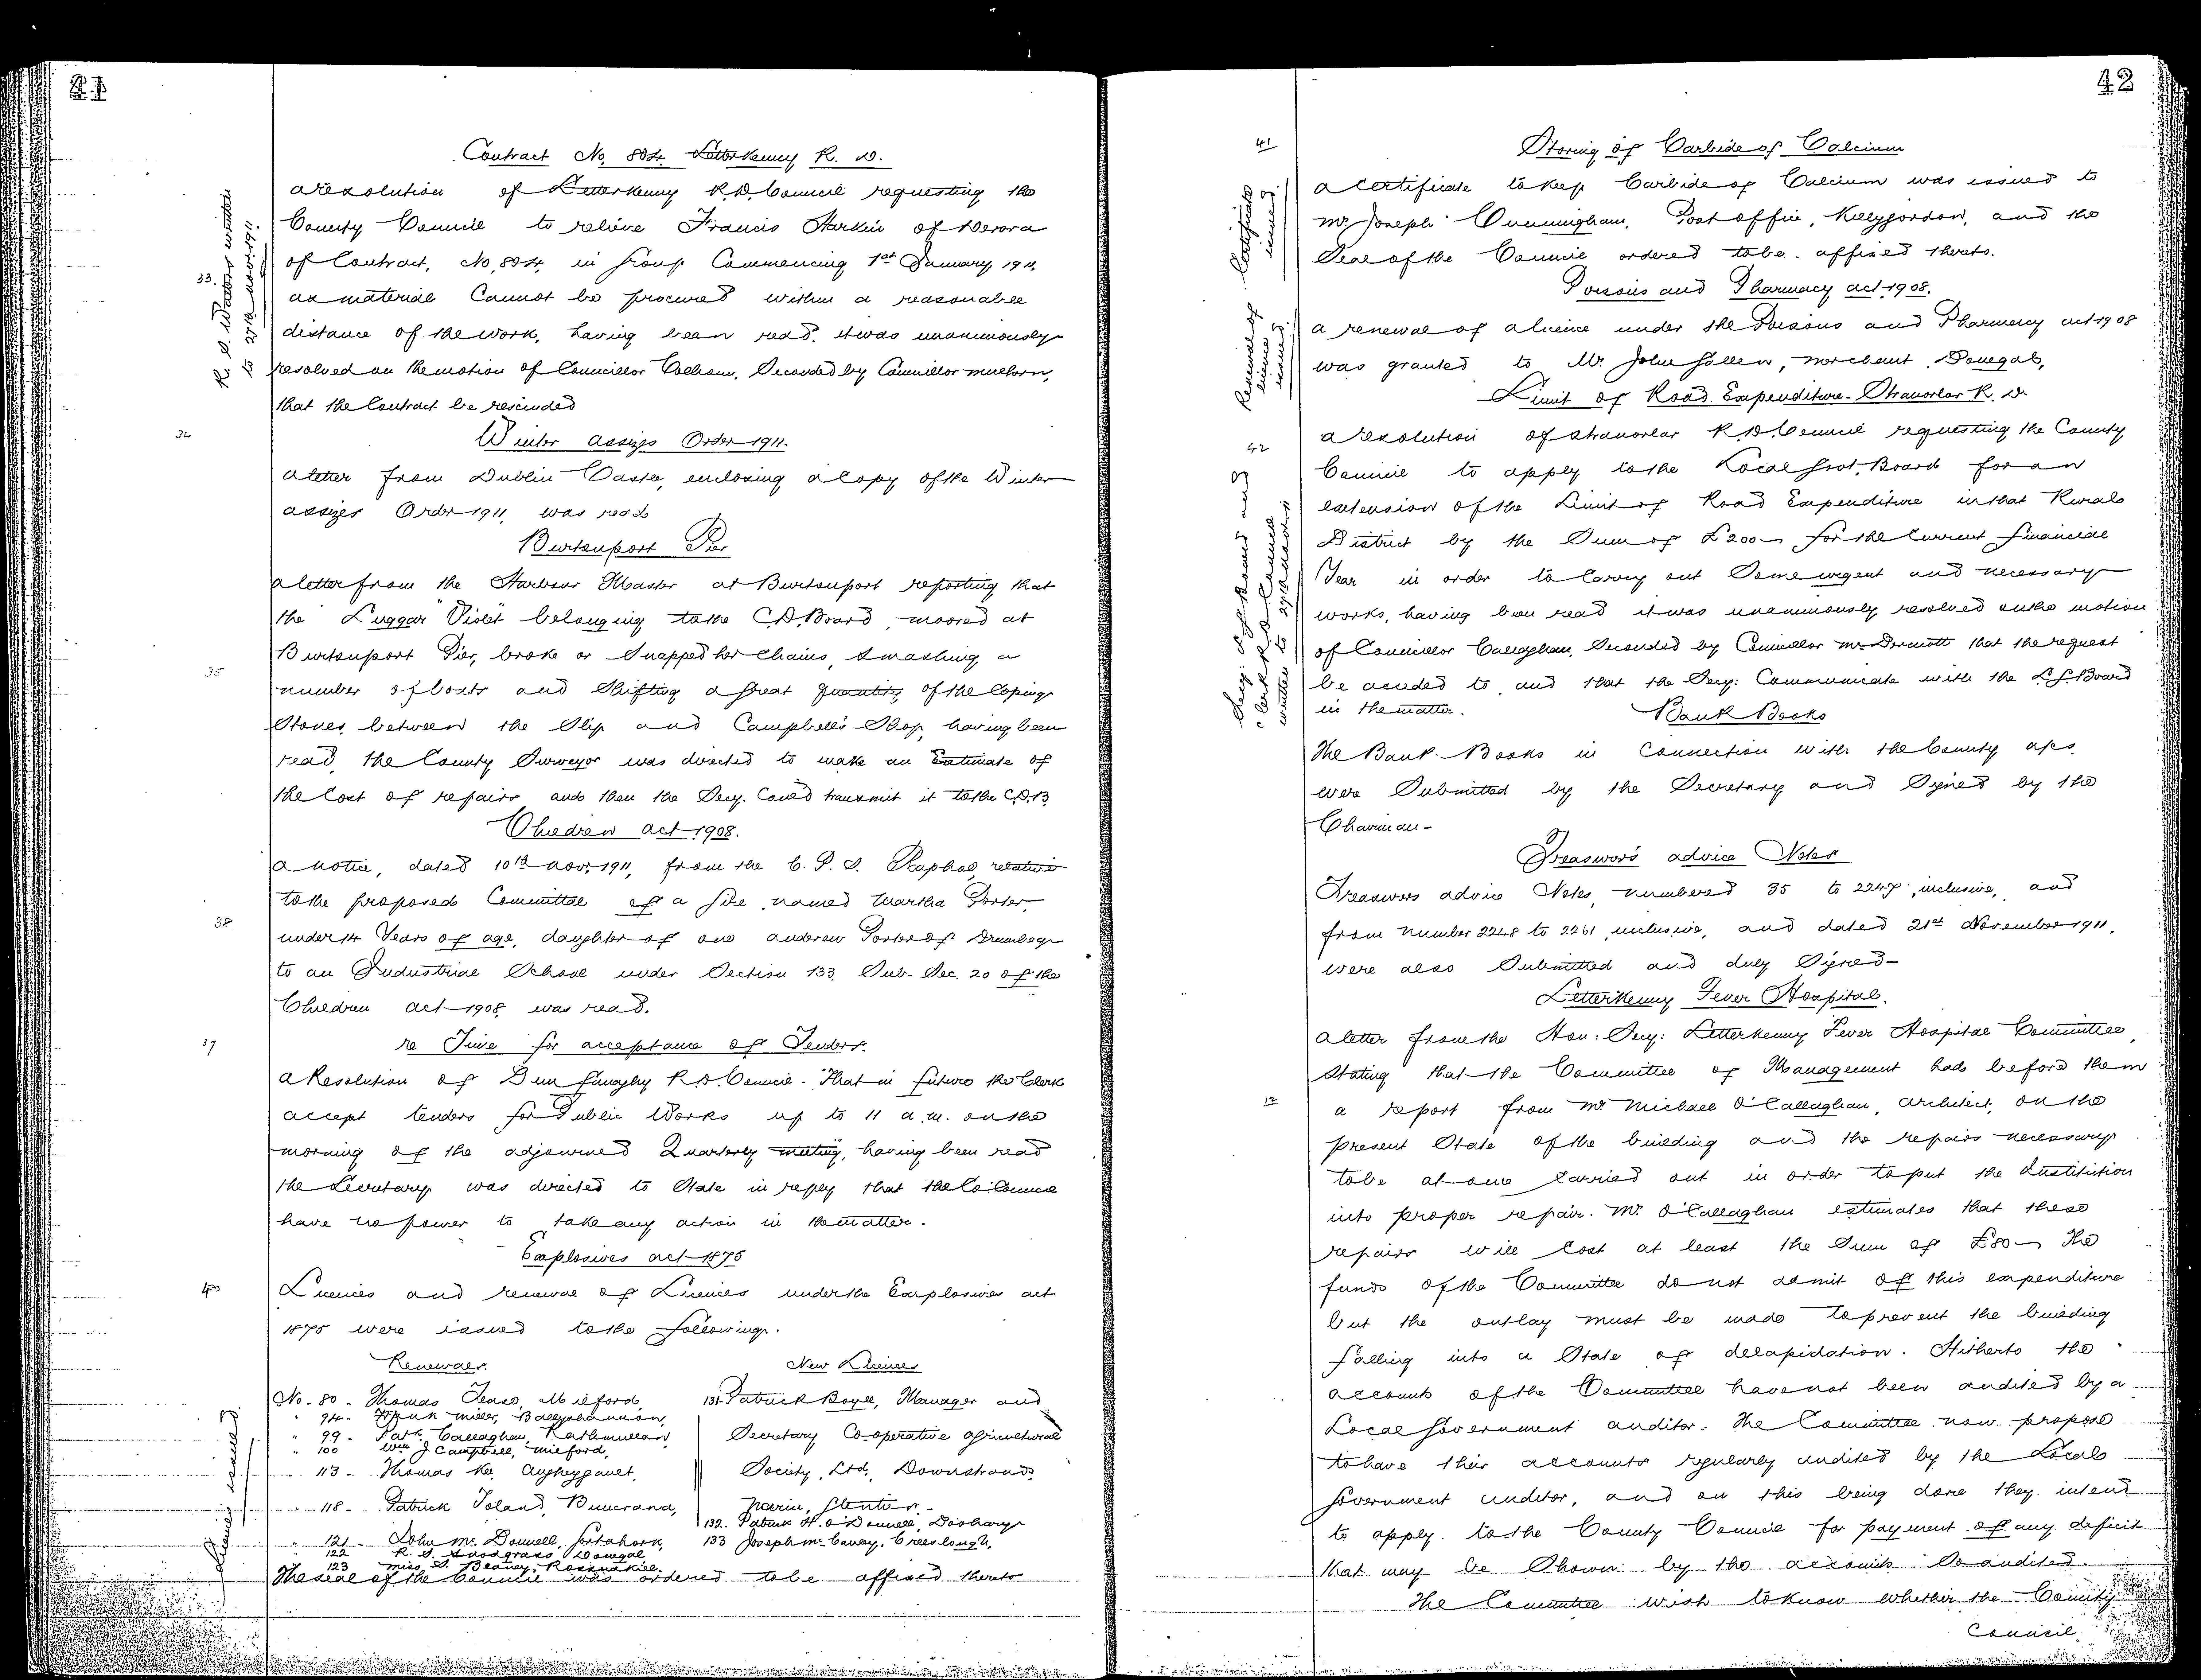 41
Contract No. 804. Letterkenny R. D.
a resolution of Letterkenny R.D. Council requesting the
County Council to relieve Francis Harkin of Derora
of Contract, No. 804, in group Commencing 1st January 1911,
as material Cannot be procured within a reasonable
33.
R. D. Waters written
to 27th Novr 1911.
distance of the work, having been read, it was unanimously
resolved on the motion of Councillor Colhoun, Seconded by Councillor Mulhern,
that the Contract be rescinded
34
Winter Assizes Order 1911.
a letter from Dublin Castle, enclosing a Copy of the Winter
assizes Order 1911, was read
Burtonport Pier
a letter from the Harbour Master at Burtonport reporting that
the Luggar "Violet" belonging to the C.D. Board, moored at
Burtonport Pier, broke or Snapped her Chains, smashing a
35
number of boats and Shifting a great quantity of the Coping
Stones between the Slip and Campbell's Shop, having been
read, the County Surveyor was directed to make an Estimate of
the Cost of repairs and then the Secy. Could transmit it to the C.D.B.
Children Act 1908.
a notice, dated 10th Novr. 1911, from the C. P. S. Raphoe, relative
to the proposed Committal of a girl named Martha Porter,
38
under 14 Years of age, daughter of one Andrew Porter of Drumbeg
to an Industrial School under Section 133 Sub. Sec. 20 of the
Children Act 1908, was read.
39
re Time for acceptance of Tenders.
a Resolution of Dunfanaghy R.D. Council. "That in future the Clerk
accept tenders for Public Works up to 11 a.m. on the
morning of the adjourned Quarterly meeting", having been read
the Secretary was directed to State in reply that the Co. Council
have no power to take any action in the matter.
Explosives Act 1875
40
Licences and renewal of Licences under the Explosives Act
1875 were issued to the following.
Licences issued
Renewals. New Licences
No. 80 - Thomas Tease, Milford, 131. Patrick Boyle, Manager and
" 94 - Frank Miller, Ballyshannon,
" 99 - Patk. Callaghan, Rathmullan, Secretary Co-operative Agricultural
" 100 Wm J Campbell, Milford,
" 113 - Thomas Kee, Augheygault, Society, Ltd., Downstrands,
" 118 - Patrick Toland, Buncrana, Narin, Glenties -
132. Patrick H. O'Donnell, Doochary
" 121 - John McDonnell, Gortahork, 133 Joseph McCauley, Creeslough,
122 R. S. Snodgrass, Donegal
123 Miss S. Beaney, Rossnakill
The seal of the Council was ordered to be affixed thereto
42
41
Storing of Carbide of Calcium
Certificate
issued.
a certificate to keep Carbide of Calcium was issued to
Mr. Joseph Cunningham, Post Office, Killygordon, and the
Seal of the Council ordered to be affixed thereto.
Poisons and Pharmacy Act 1908.
Renewal of
licence
issued.
a renewal of a licence under the Poisons and Pharmacy Act 1908
was granted to Mr. John Gallen, Merchant, Donegal,
Limit of Road Expenditure. Stranorlar R. D.
42
a resolution of Stranorlar R.D. Council requesting the County
Council to apply to the Local Govt. Board for an
extension of the Limit of Road Expenditure in that Rural
District by the Sum of £200- for the Current Financial
Secy. L.G. Board and
Clerk R D Council
written to 27th Novr 11
Year in order to Carry out Some urgent and necessary
works, having been read it was unanimously resolved on the motion
of Councillor Callaghan, Seconded by Councillor McDermott that the request
be acceded to, and that the Secy: Communicate with the L.G. Board
in the matter.
Bank Books
The Bank Books in Connection with the County a/cs.
were Submitted by the Secretary and Signed by the
Chairman -
Treasurer's advice Notes
Treasurers advice Notes, numbered 35 to 2247, inclusive, and
from number 2248 to 2261, inclusive, and dated 21st November 1911,
were also Submitted and duly Signed -
Letterkenny Fever Hospital.
a letter from the Hon: Secy: Letterkenny Fever Hospital Committee,
Stating that the Committee of Management had before them
a report from Mr. Michael O'Callaghan, Architect, on the
present State of the building and the repairs necessary
to be at once Carried out in order to put the Institution
into proper repair. Mr. O'Callaghan estimates that these
repairs will Cost at least the Sum of £80- The
funds of the Committee do not admit of this expenditure
but the outlay must be made to prevent the building
falling into a State of delapidation. Hitherto the
accounts of the Committee have not been audited by a
Local Government auditor. The Committee now propose
to have their accounts regularly audited by the Local
Government auditor, and on this being done they intend
to apply to the County Council for payment of any deficit
that may be Shown by the accounts So audited.
The Committee wish to know whether the County
Council